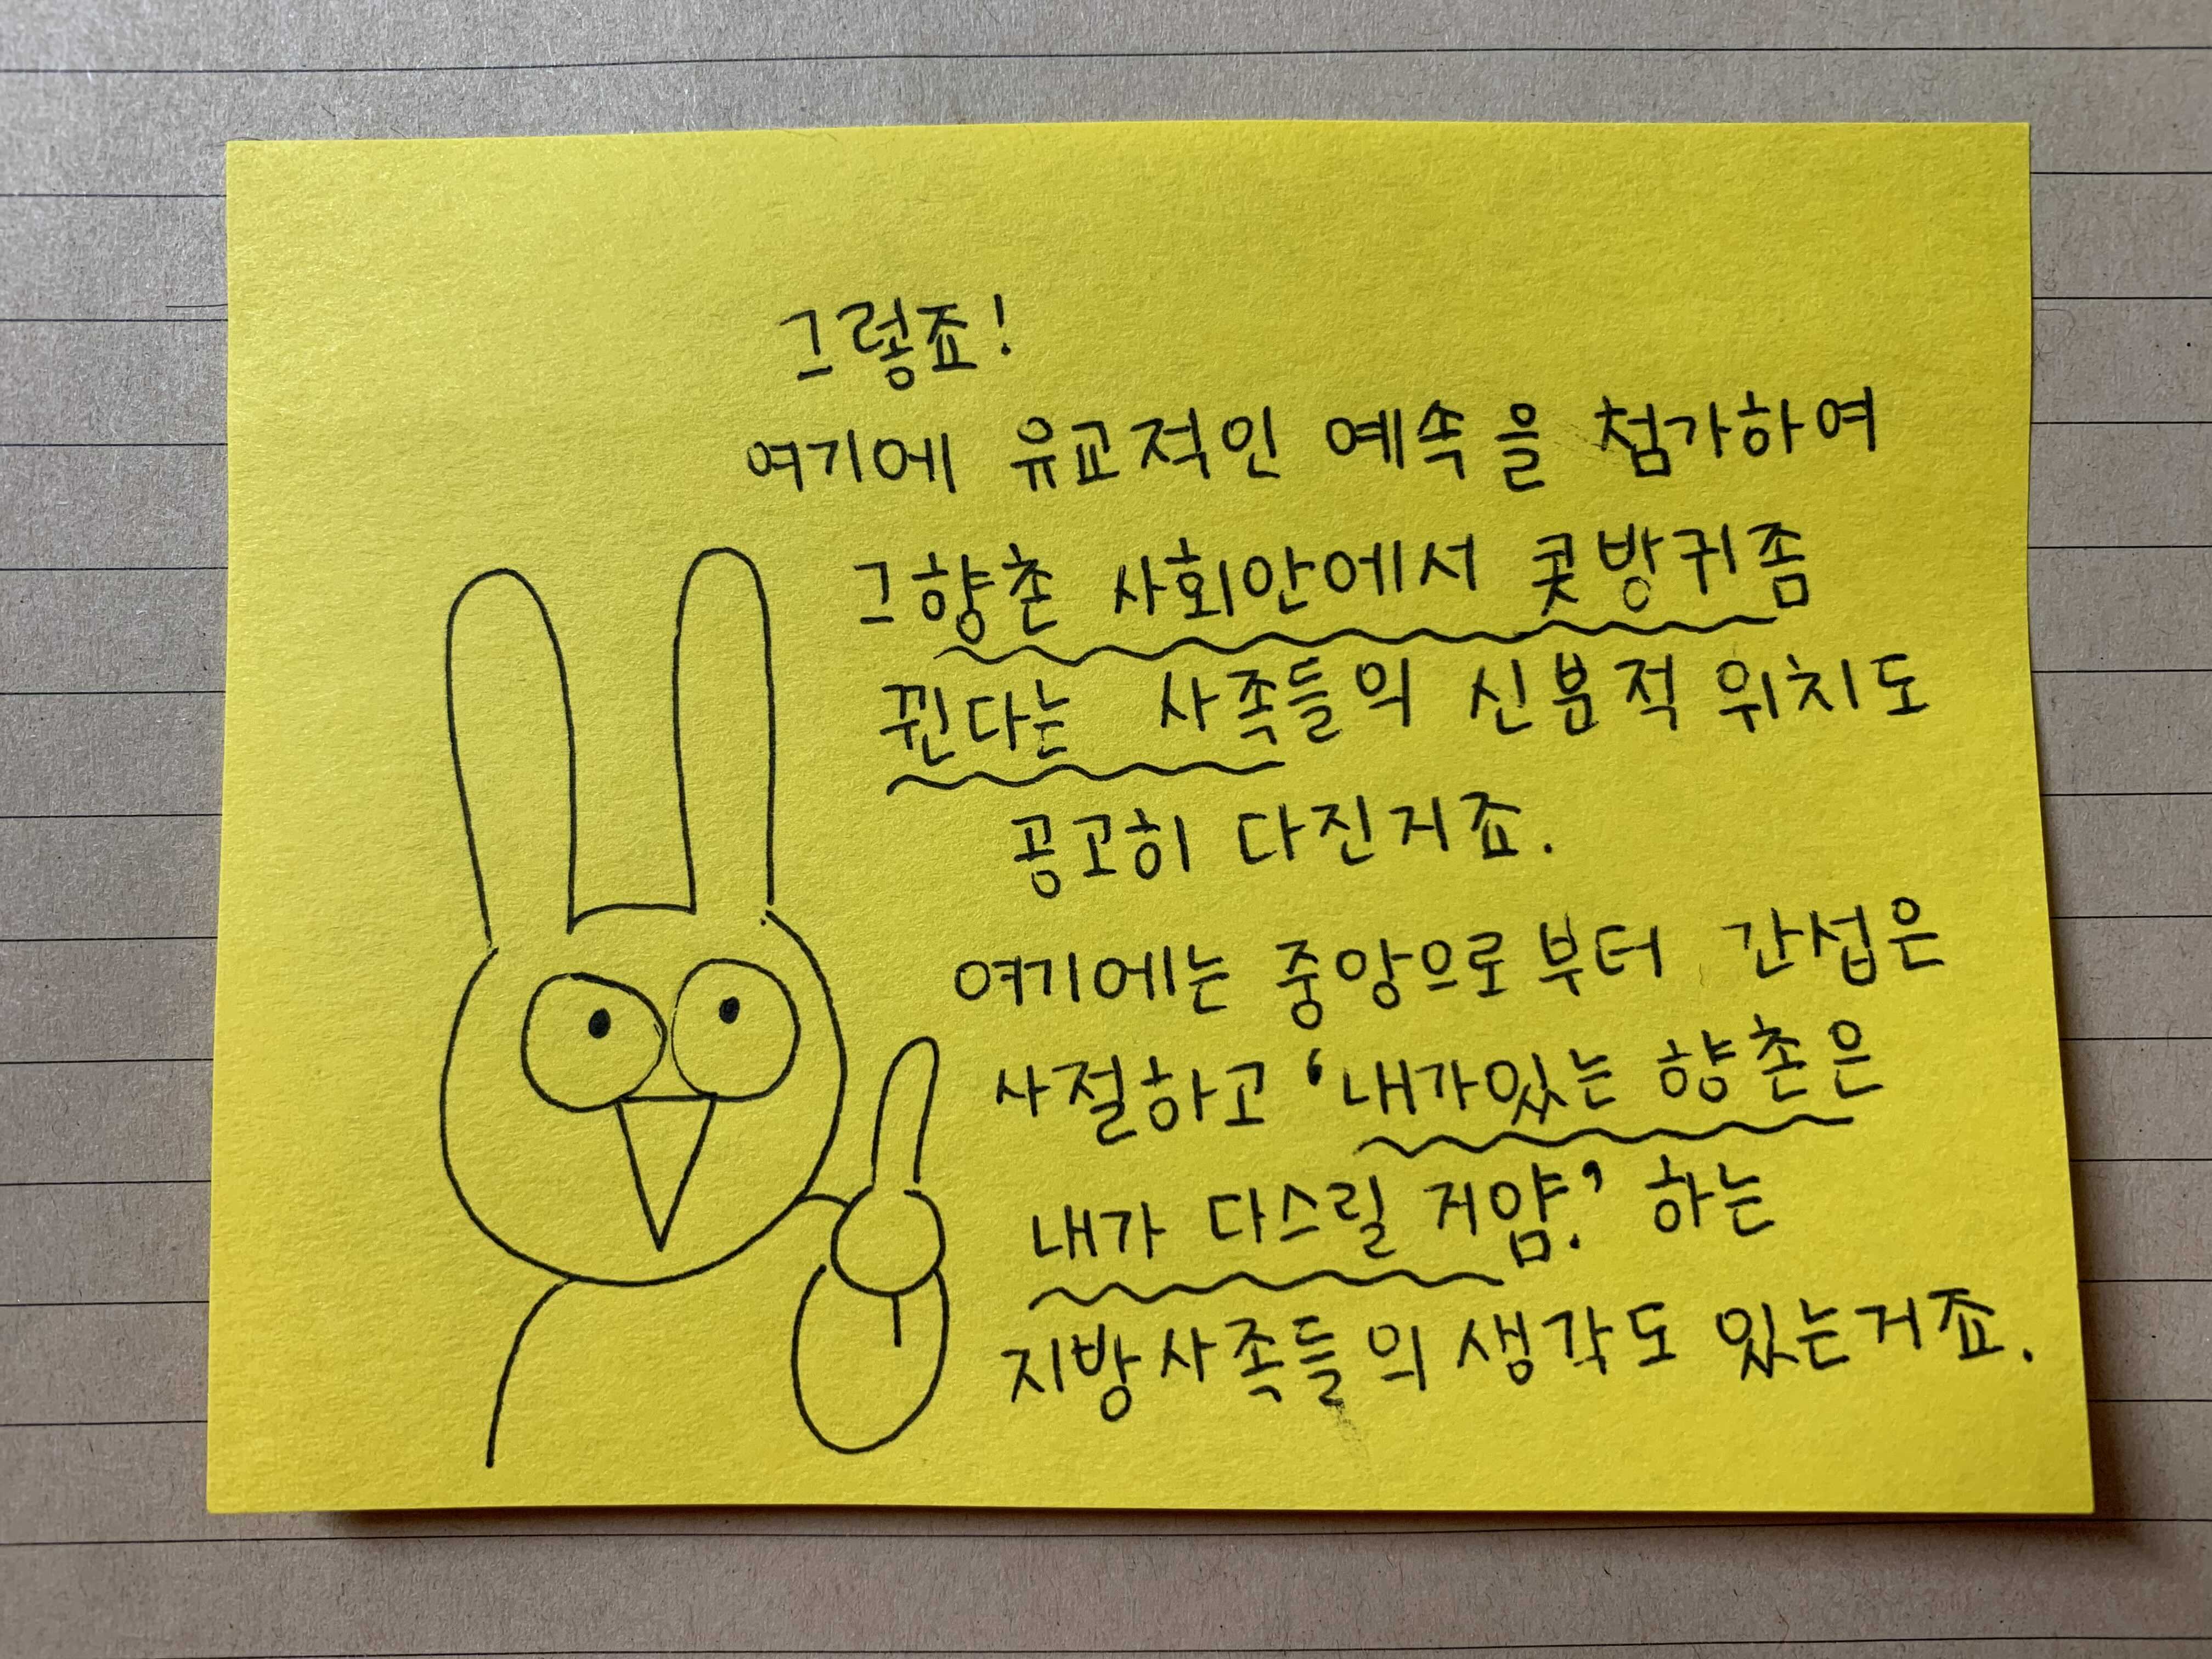 그렇죠!
여기에 유교적인 예속을 첨가하여
그향촌 사회안에서 콧방귀좀
뀐다는 사족들의 신분적 위치도
공고히 다진거죠.
여기에는 중앙으로부터 간섭은
사절하고 '내가있는 향촌은
내가 다스릴 거얌.' 하는
지방사족들의 생각도 있는거죠.